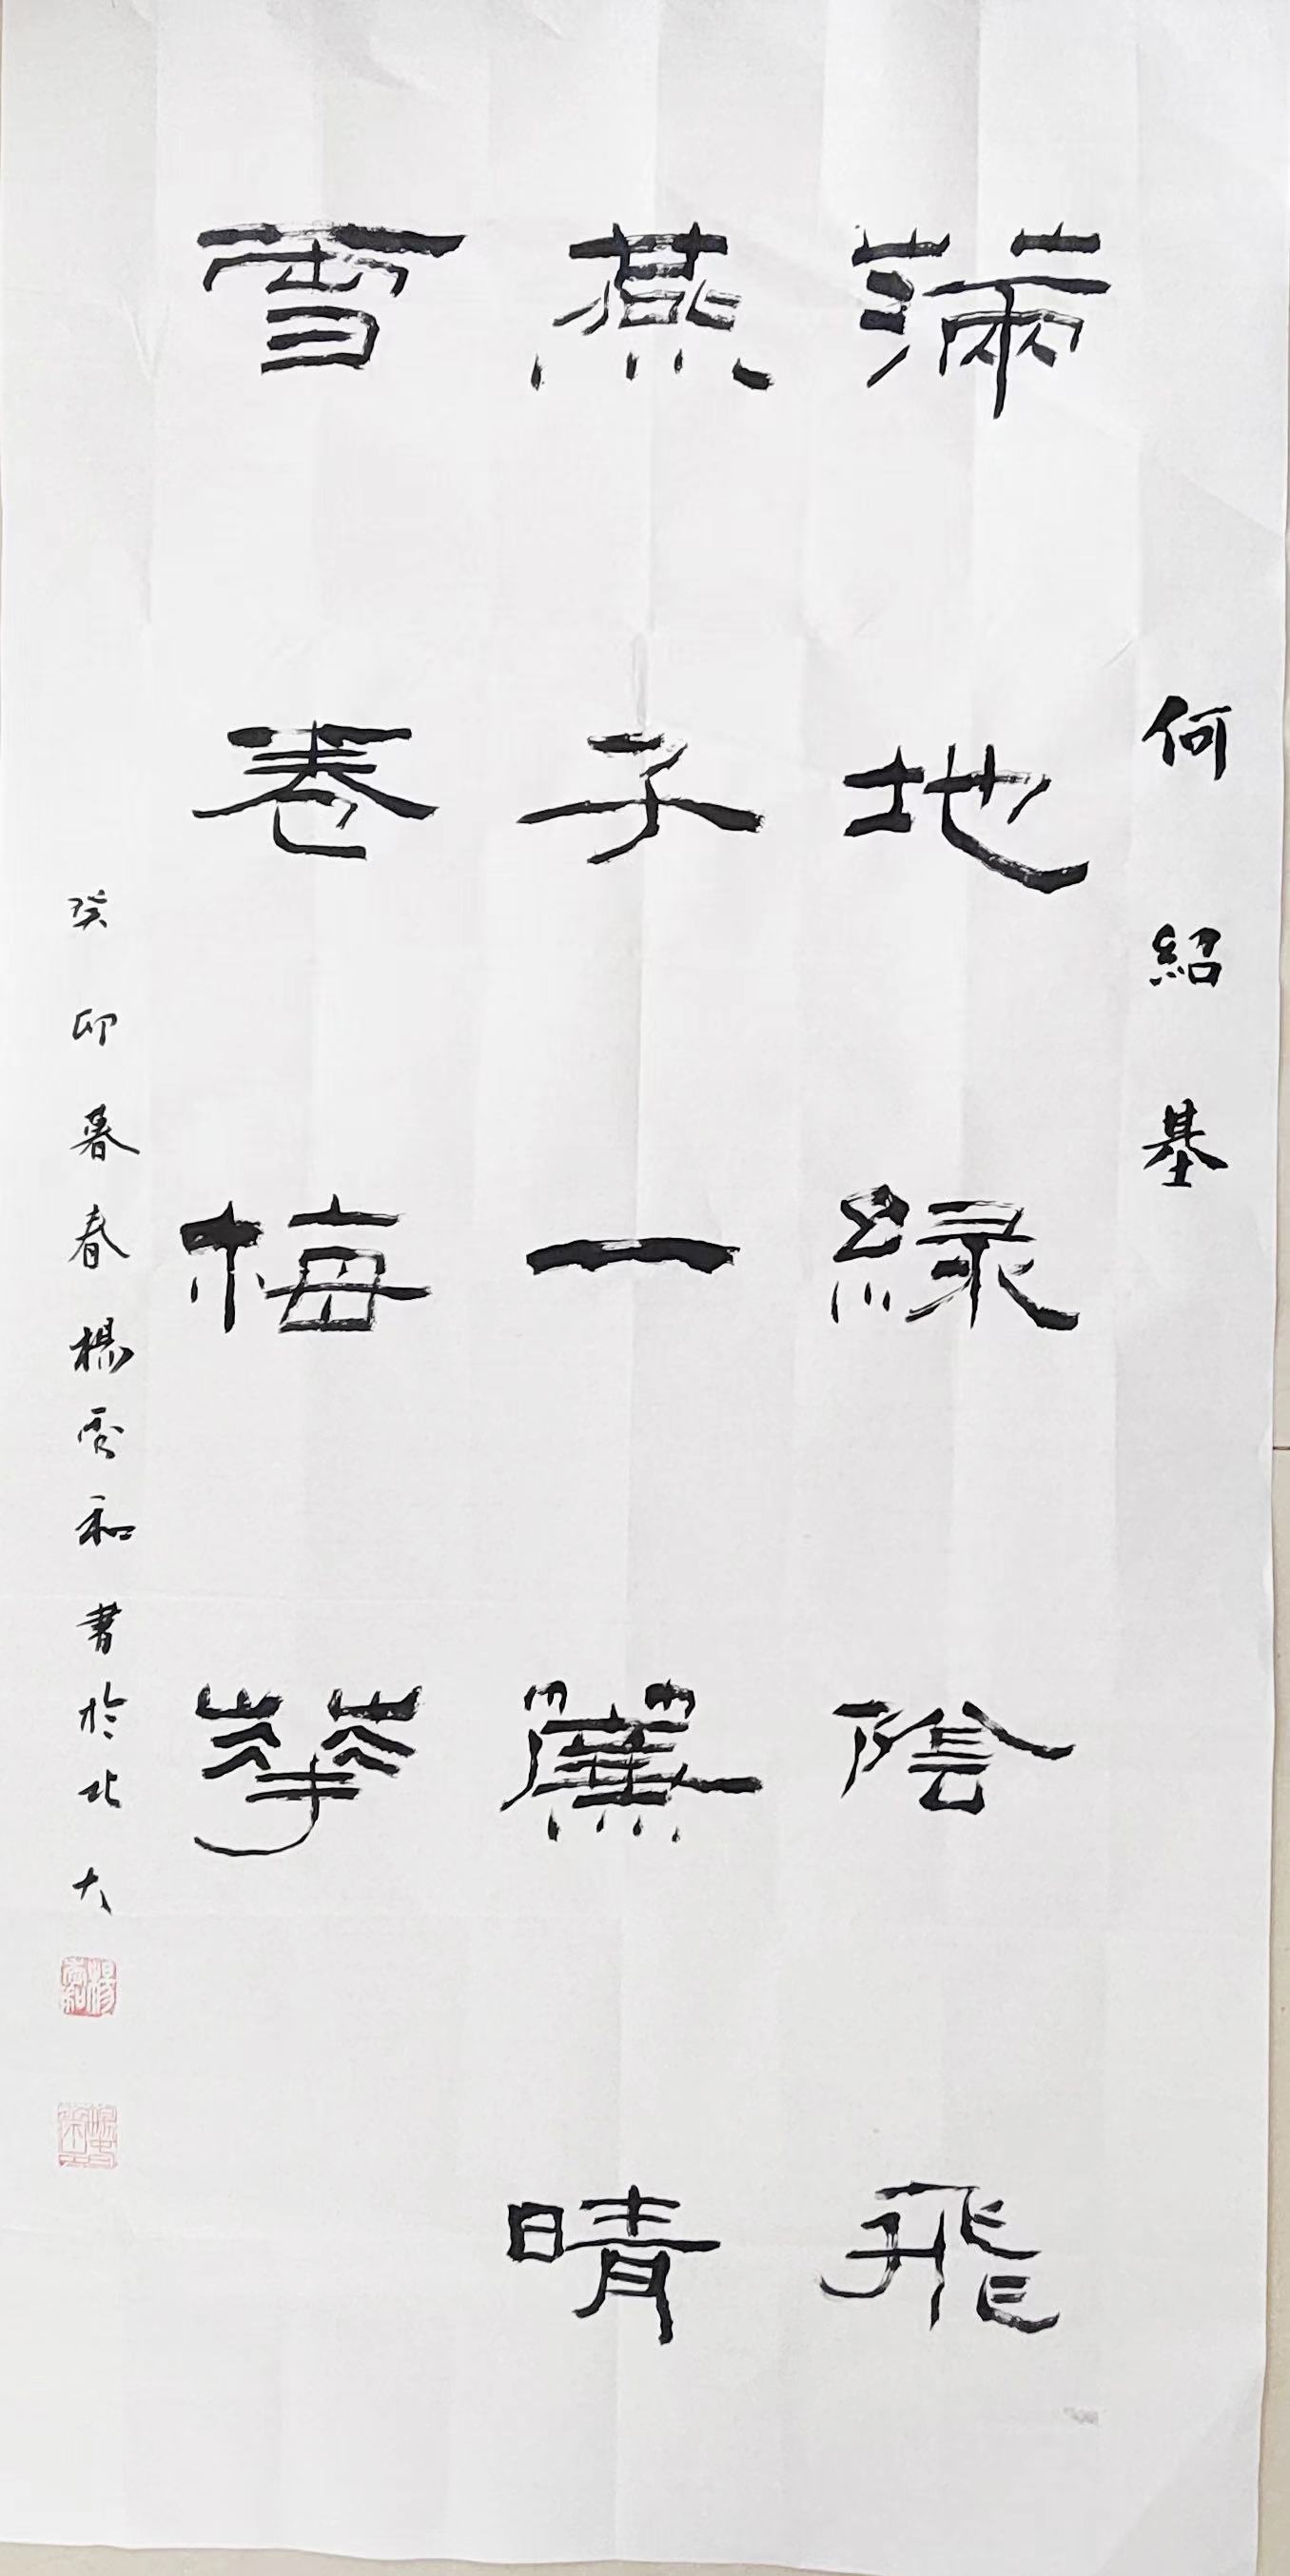 何紹基
滿地綠陰飛
燕子一簾晴
雪卷梅華
癸卯暮春楊雲和書於北大